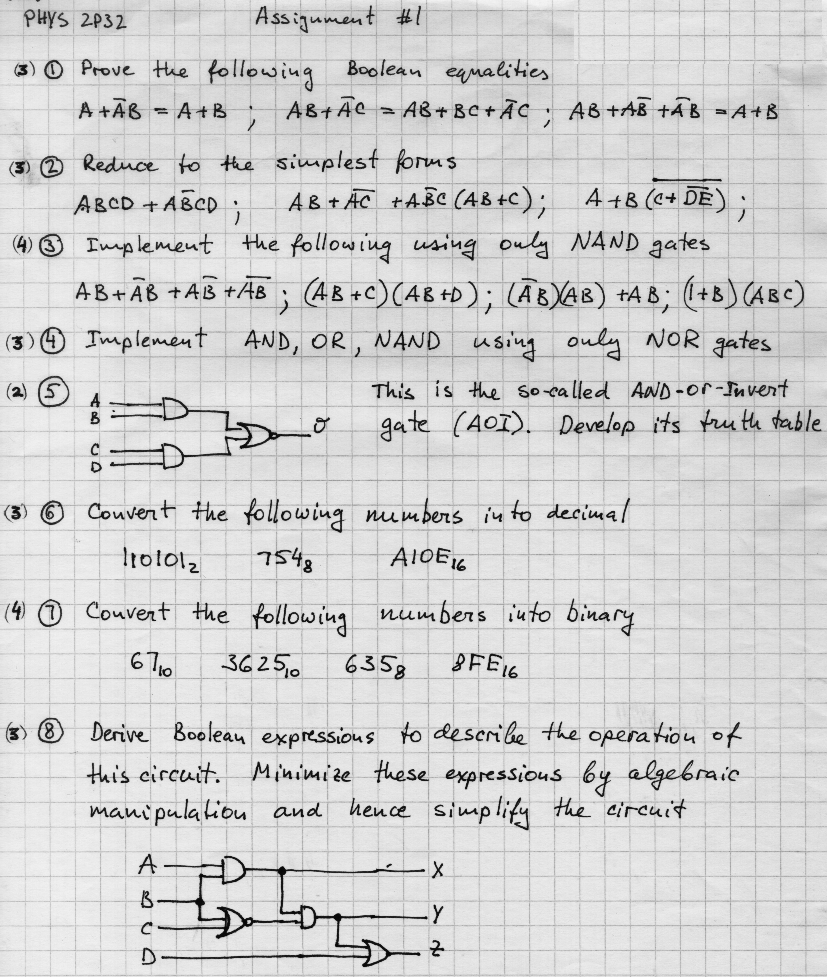 PHYS 2P32 Assignment #1
(3) ① Prove the following Boolean equalities
A + A̅B = A + B ; AB + A̅C = AB + BC + A̅C ; AB + AB̅ + A̅B = A + B
(3) ② Reduce to the simplest forms
ABCD + AB̅CD ; AB + A̅C̅ + AB̅C (AB + C) ; A + B (C̅ ̅+̅ ̅D̅E̅) ;
(4) ③ Implement the following using only NAND gates
AB + A̅B + AB̅ + A̅B̅ ; (AB + C)(AB + D) ; (A̅B)(AB) + AB ; (1+B)(ABC)
(3) ④ Implement AND, OR, NAND using only NOR gates
(2) ⑤ This is the so-called AND-or-Invert
gate (AOI). Develop its truth table
A
B
C
D
O
(3) ⑥ Convert the following numbers into decimal
110101₂ 754₈ A10E₁₆
(4) ⑦ Convert the following numbers into binary
67₁₀ 3625₁₀ 635₈ 8FE₁₆
(3) ⑧ Derive Boolean expressions to describe the operation of
this circuit. Minimize these expressions by algebraic
manipulation and hence simplify the circuit
A X
B Y
C
D Z